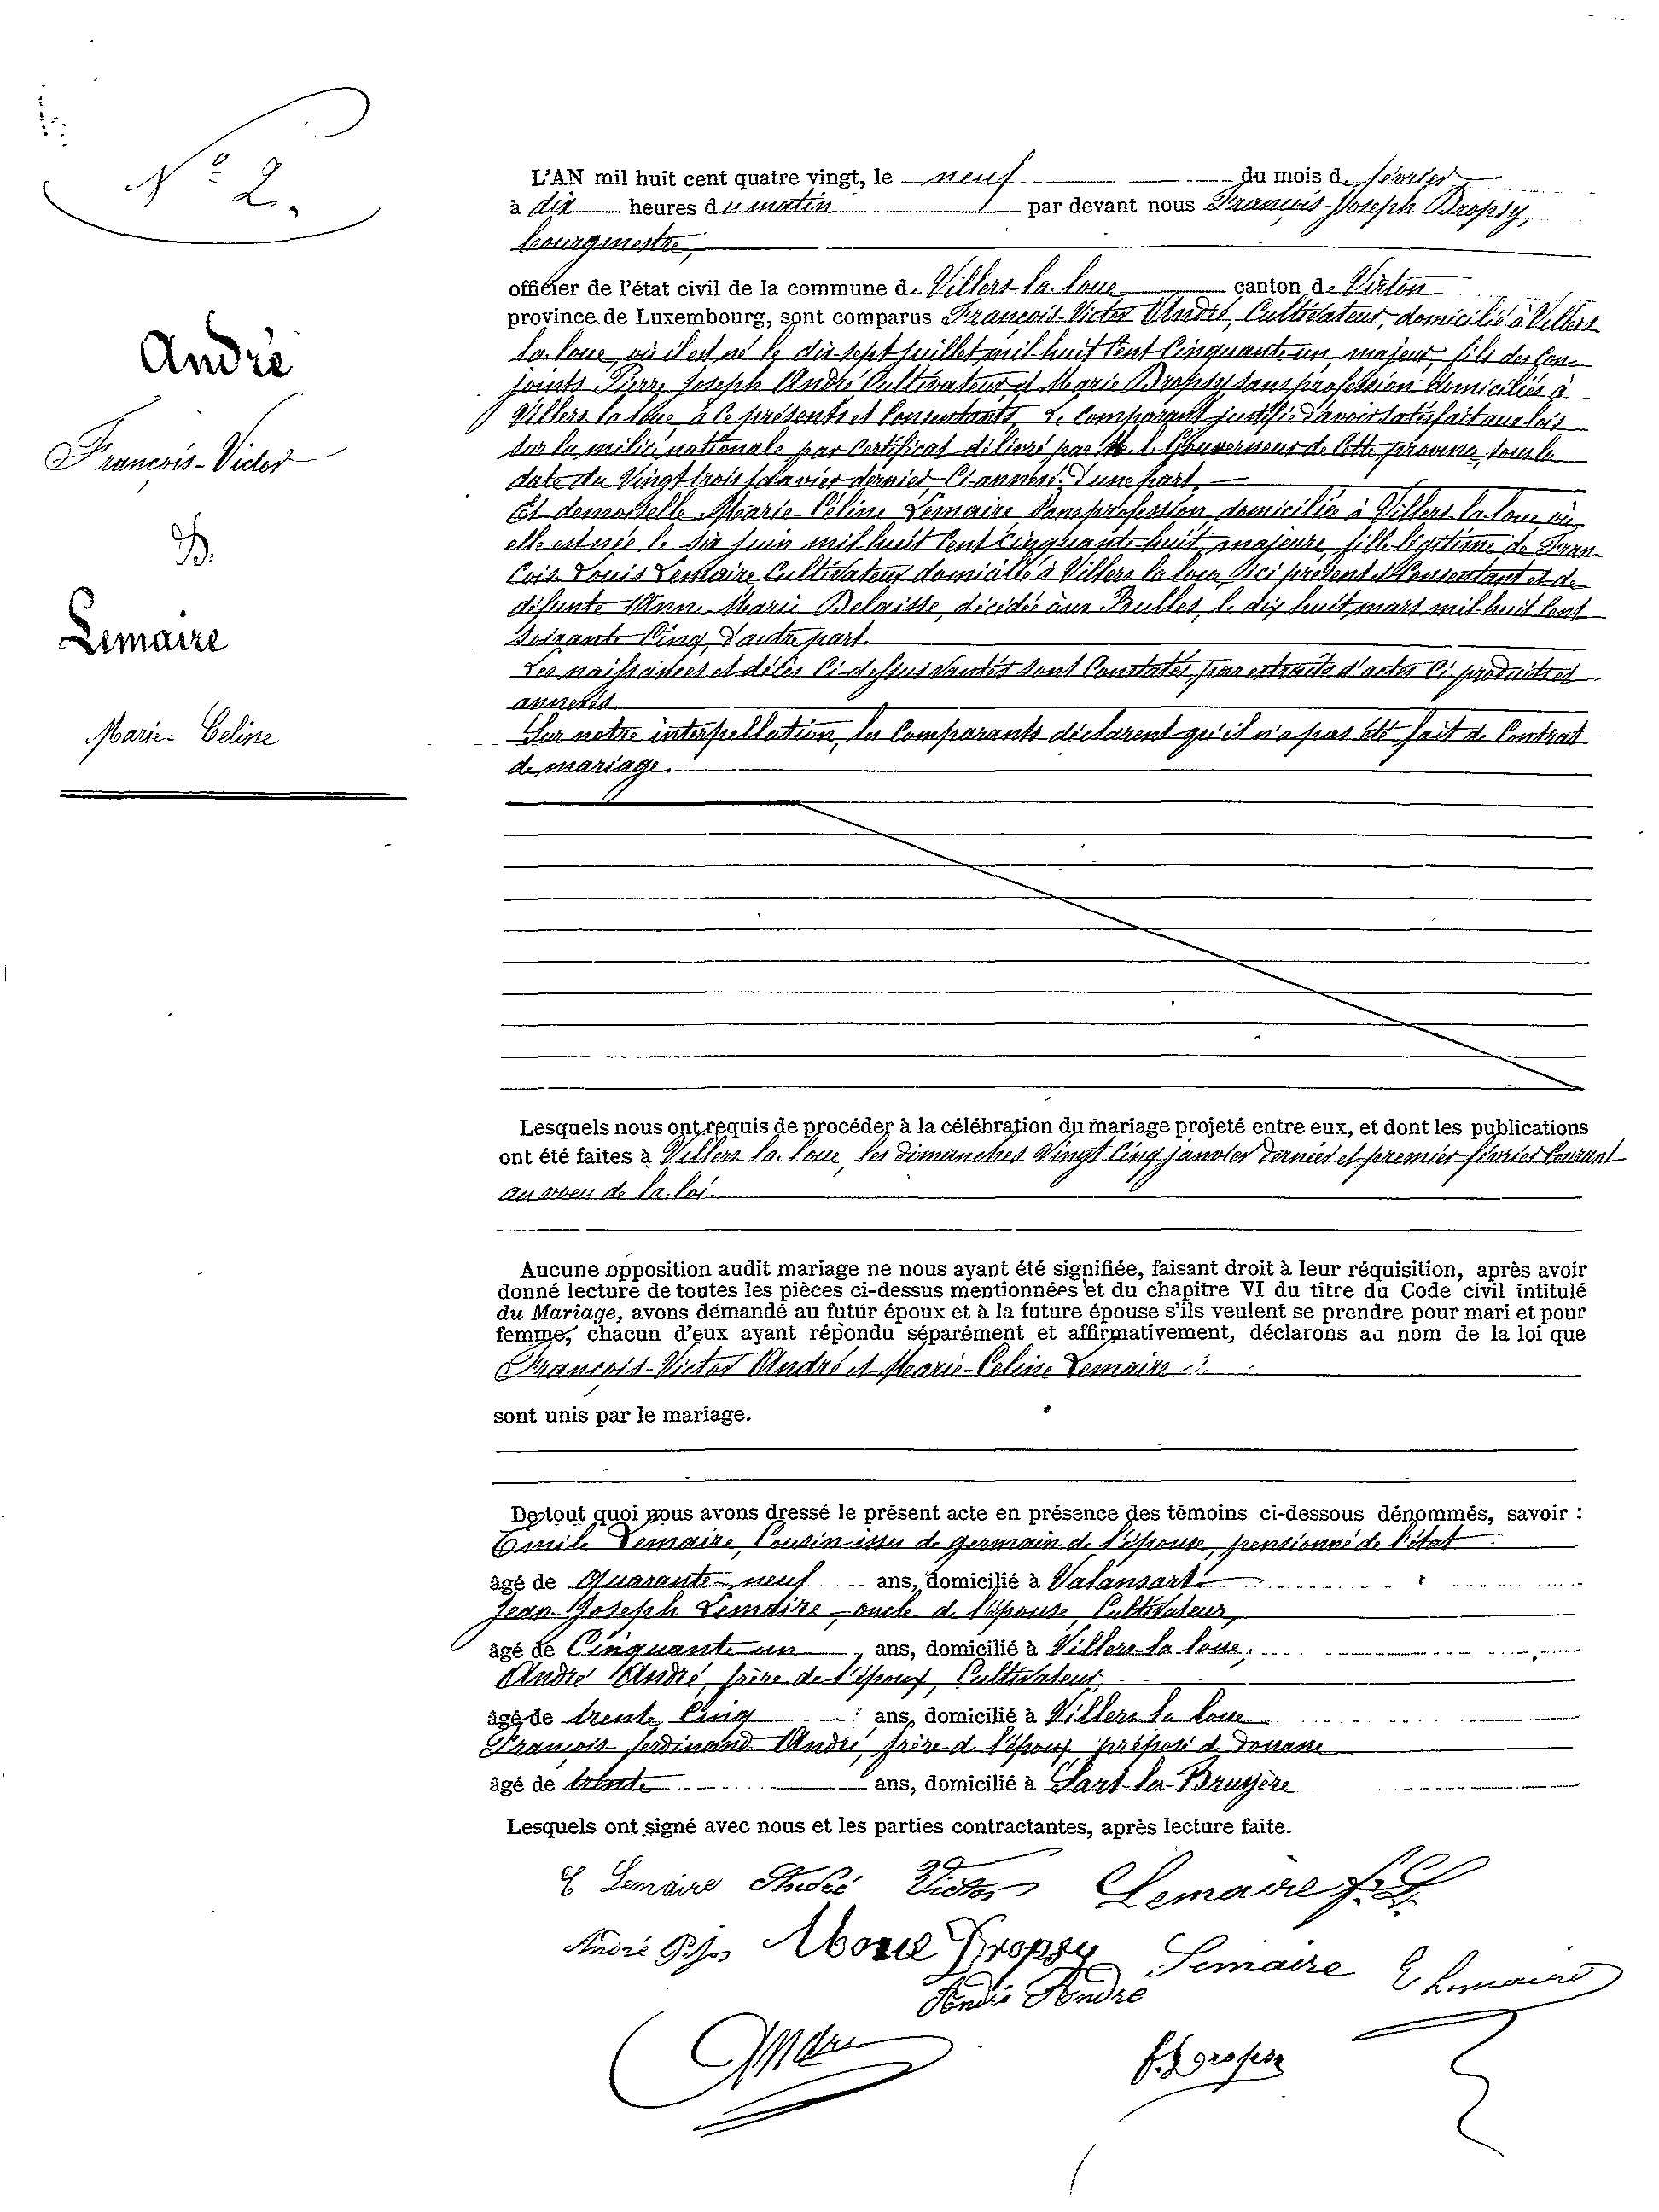 N° 2.
André
François-Victor
&
Lemaire
Marie-Celine
L'AN mil huit cent quatre vingt, le neuf du mois de février
à dix heures du matin par devant nous François-Joseph Dropsy,
bourgmestre,
officier de l'état civil de la commune de Villers-la-loue canton de Virton
province de Luxembourg, sont comparus François-Victor André, Cultivateur, domicilié à Villers
la-loue, où il est né le dix-sept juillet mil huit Cent Cinquante un, majeur, fils des Con-
joints Pierre Joseph André Cultivateur, et Marie Dropsy sans profession domiciliés à
Villers la loue à Ce présents et Consentants. Le Comparant justifie d'avoir satisfait aux lois
sur la milice nationale par Certificat délivré par M. le Gouverneur de Cette province, sous la
date du Vingt trois Janvier dernier Ci-annexé. D'une part.
Et demoiselle Marie-Céline Lemaire Sans profession domiciliée à Villers-la-loue où
elle est née le six juin mil huit Cent Cinquante huit, majeure, fille légitime de Fran-
çois Louis Lemaire Cultivateur domicilié à Villers la loue, ici présent et Consentant et de
défunte Anne Marie Belaisse, décédée aux Bulles, le dix huit mars mil huit Cent
Soixante Cinq, d'autre part.
Les naissances et décès Ci-dessus vantés sont Constatés par extraits d'actes Ci-produits et
annexés.
Sur notre interpellation, les Comparants déclarent qu'il n'a pas été fait de Contrat
de mariage.
Lesquels nous ont requis de procéder à la célébration du mariage projeté entre eux, et dont les publications
ont été faites à Villers la loue, les dimanches Vingt Cinq janvier dernier et premier février Courant
au voeu de la loi.
Aucune opposition audit mariage ne nous ayant été signifiée, faisant droit à leur réquisition, après avoir
donné lecture de toutes les pièces ci-dessus mentionnées et du chapitre VI du titre du Code civil intitulé
du Mariage, avons demandé au futur époux et à la future épouse s'ils veulent se prendre pour mari et pour
femme, chacun d'eux ayant répondu séparément et affirmativement, déclarons au nom de la loi que
François-Victor André et Marie-Celine Lemaire
sont unis par le mariage.
De tout quoi nous avons dressé le présent acte en présence des témoins ci-dessous dénommés, savoir :
Emile Lemaire, Cousin issu de germain de l'épouse, pensionné de l'état
âgé de Quarante-neuf ans, domicilié à Valansart
Jean-Joseph Lemaire, oncle de l'épouse, Cultivateur,
âgé de Cinquante un ans, domicilié à Villers la loue,
André André, frère de l'époux, Cultivateur,
âgé de trente Cinq ans, domicilié à Villers la loue
François Ferdinand André, frère de l'époux préposé de Douane
âgé de trente ans, domicilié à Sart-la-Bruyère
Lesquels ont signé avec nous et les parties contractantes, après lecture faite.
C Lemaire André Victor Lemaire f. L.
André P. Jos Marie Dropsy Lemaire E Lemaire
André André
André f. Dropsy